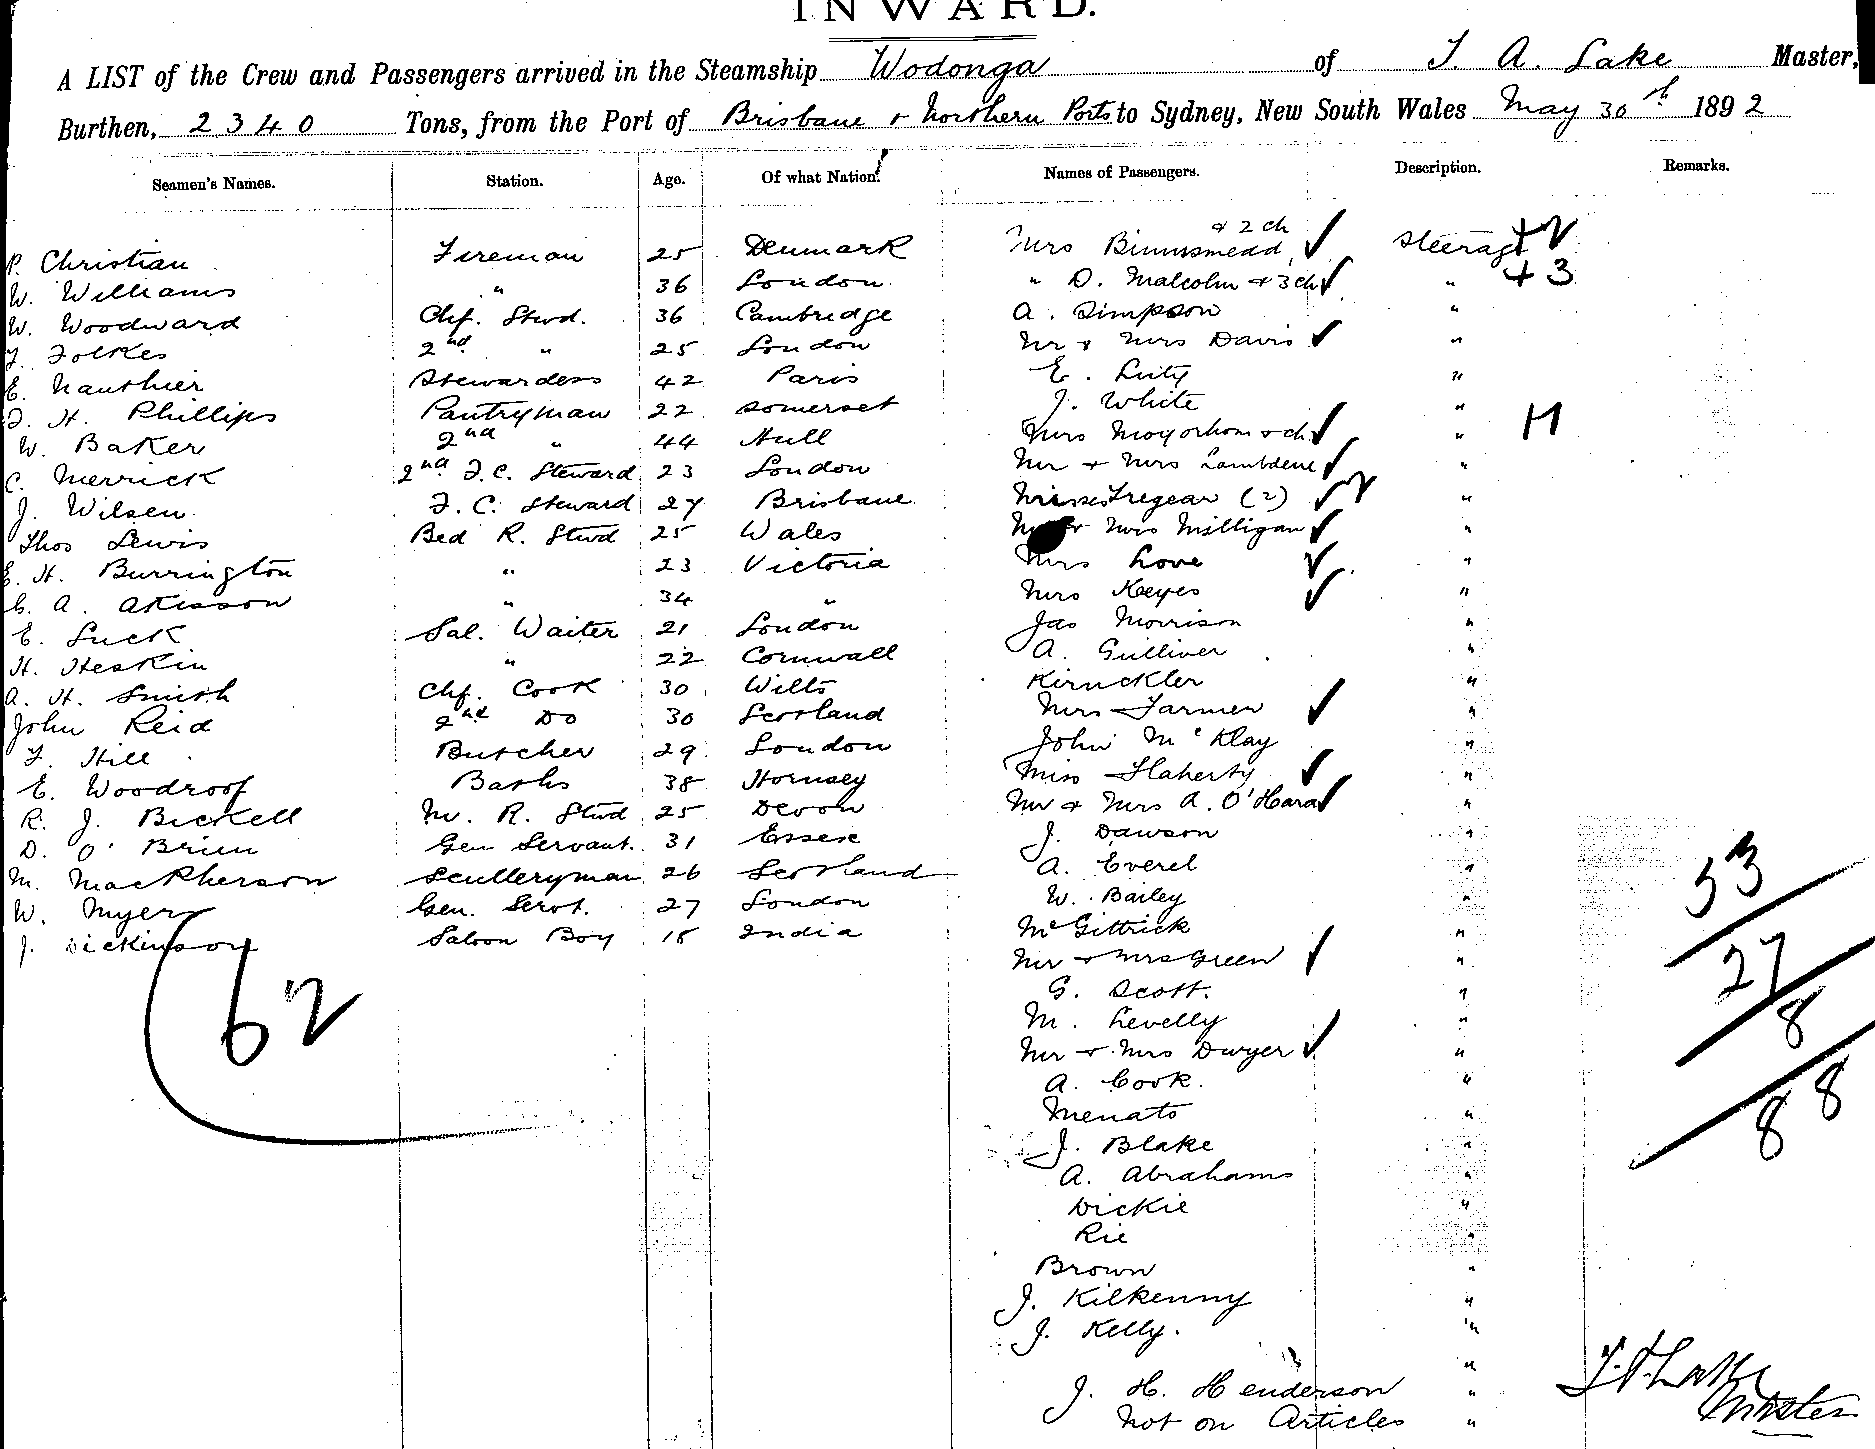 INWARD.
A LIST of the Crew and Passengers arrived in the Steamship Wodonga of T. A. Lake Master,
Burthen, 2340 Tons, from the Port of Brisbane & Northern Ports to Sydney, New South Wales May 30th 1892
Seamen's Names. Station. Age. Of what Nation. Names of Passengers. Description. Remarks.
P. Christian Fireman 25 Denmark Mrs & 2 ch Steerage + 2
W. Williams " 36 London " D. Malcolm & 3 ch " + 3
W. Woodward Chf. Stwd. 36 Cambridge A. Simpson "
Folkes 2nd " 25 London Mr & Mrs Davis "
E. Stewardess 42 Paris E. Luty "
H. Phillips Pantryman 22 Somerset J. White "
W. Baker 2nd " 44 Hull Mrs & ch " H
C. Merrick 2nd F.C. Steward 23 London Mr & Mrs Lambdene "
J. Wilsen F.C. Steward 27 Brisbane Misses Tregear (2) "
Thos Lewis Bed R. Stwd 25 Wales & Mrs Milligan "
E. H. Burrington " 23 Victoria Mrs Love "
A. Akisson " 34 " Mrs Keyes "
E. Luck Sal. Waiter 21 London Jas Morrison "
H. Heskin " 22 Cornwall A. Gulliver "
A. H. Smith Chf. Cook 30 Wilts Kirnckler "
John Reid 2nd Do 30 Scotland Mrs Farmer "
Hill Butcher 29 London John McKlay "
E. Woodroof Baths 38 Hornsey Miss Flaherty "
R. J. Bickell M. R. Stwd 25 Devon Mr & Mrs A. O'Hara "
D. O'Brien Gen Servant. 31 Essex J. Dawson "
M. MacPherson Sculleryman 26 Scotland A. Everel "
W. Myers Gen. Servt. 27 London W. Bailey "
J. Dickinson Saloon Boy 18 India McGittrick "
Mr & Mrs Green "
G. Scott. "
M. Levelly "
Mr & Mrs Dwyer "
A. Cook. "
Menato "
J. Blake "
A. Abrahams "
Dickie "
Rie "
Brown "
J. Kilkenny "
J. Kelly. "
"
J. H. Henderson "
Not on Articles "
62
53
27
8
88
T. A. Lake
Master